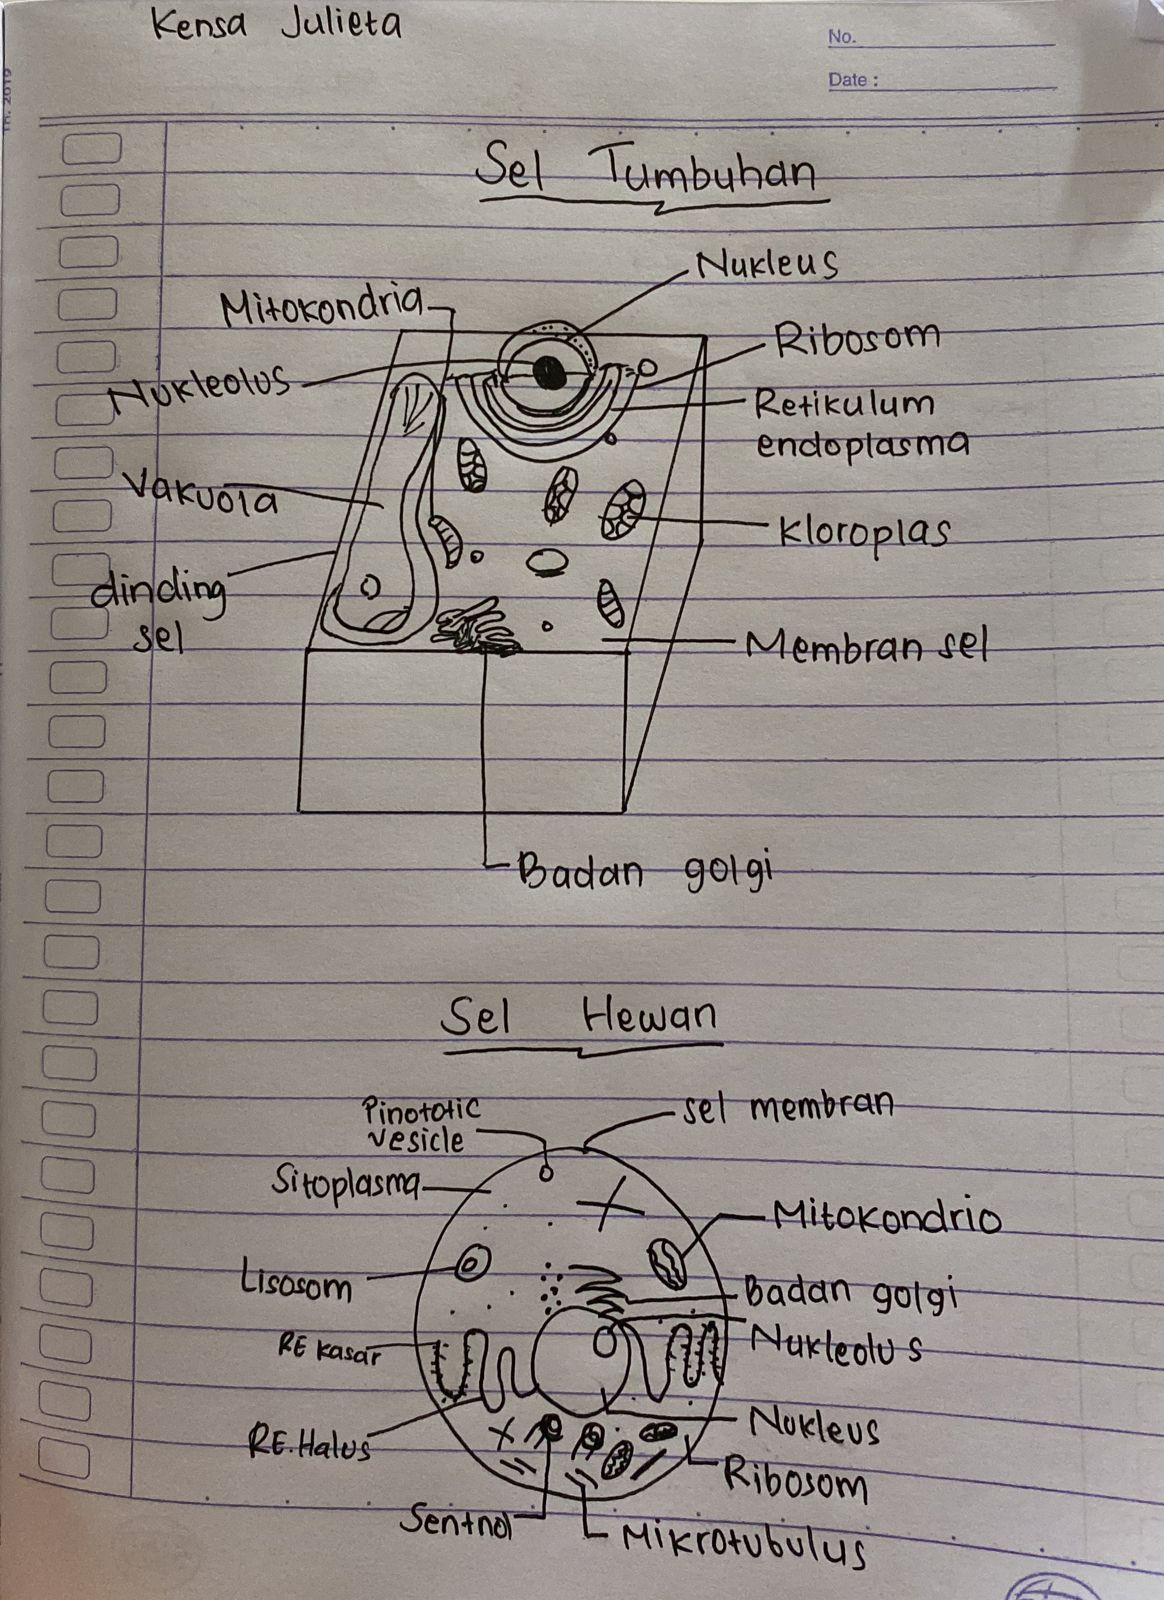 Kensa Julieta
No.
Date :
Sel Tumbuhan
Nukleus
Mitokondria
Ribosom
Nukleolus
Retikulum
endoplasma
Vakuola
Kloroplas
dinding
sel
Membran sel
Badan golgi
Sel Hewan
Pinototic
vesicle
sel membran
Sitoplasma
Mitokondrio
Lisosom
Badan golgi
Nukleolus
RE kasar
Nukleus
RE.Halus
Ribosom
Mikrotubulus